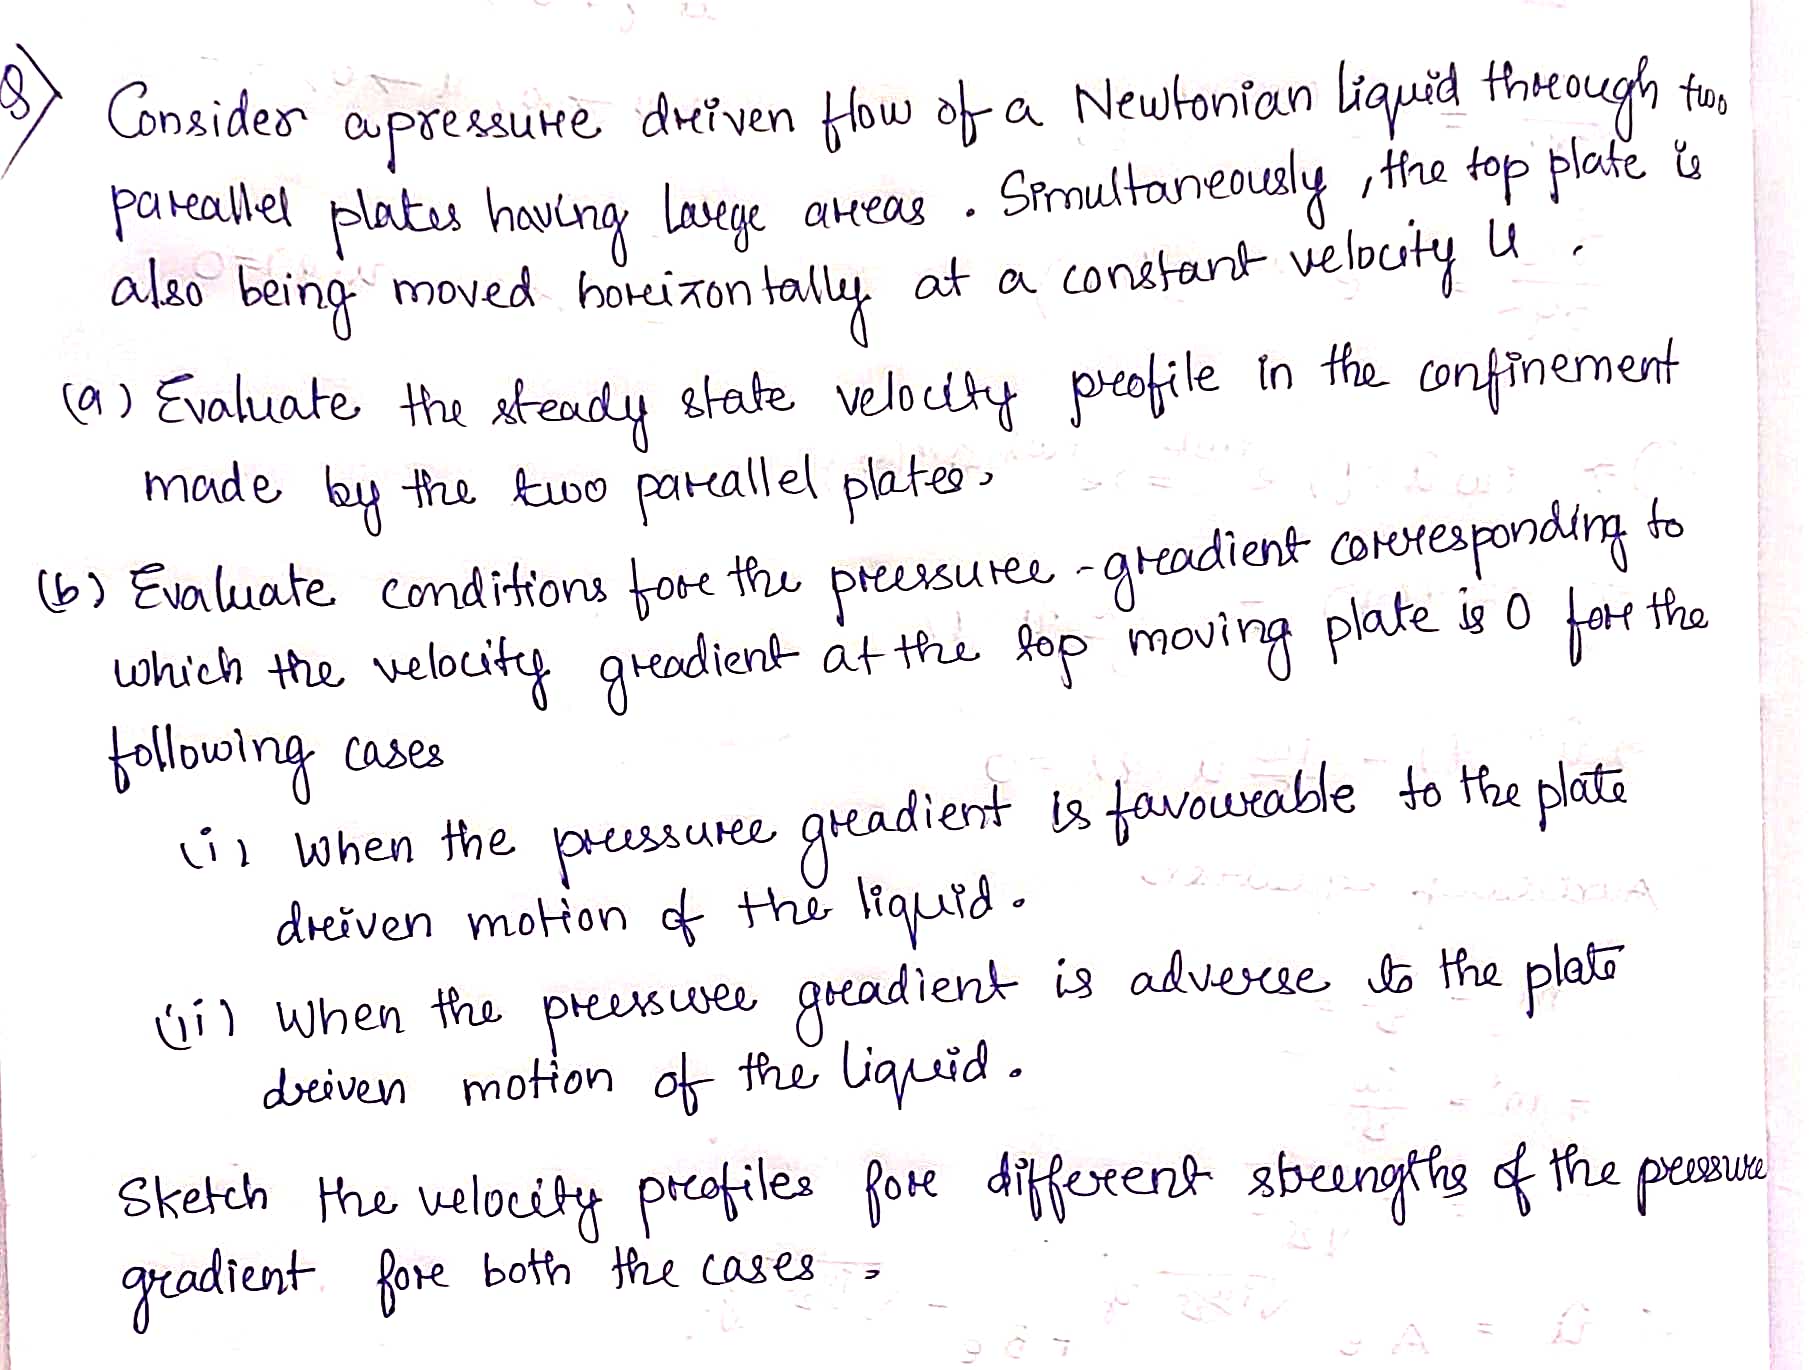 8) Consider a pressure driven flow of a Newtonian liquid through two
parallel plates having large areas. Simultaneously, the top plate is
also being moved horizontally at a constant velocity U.
(a) Evaluate the steady state velocity profile in the confinement
made by the two parallel plates.
(b) Evaluate conditions for the pressure-gradient corresponding to
which the velocity gradient at the top moving plate is 0 for the
following cases
(i) When the pressure gradient is favourable to the plate
driven motion of the liquid.
(ii) When the pressure gradient is adverse to the plate
driven motion of the liquid.
Sketch the velocity profiles for different strengths of the pressure
gradient for both the cases.